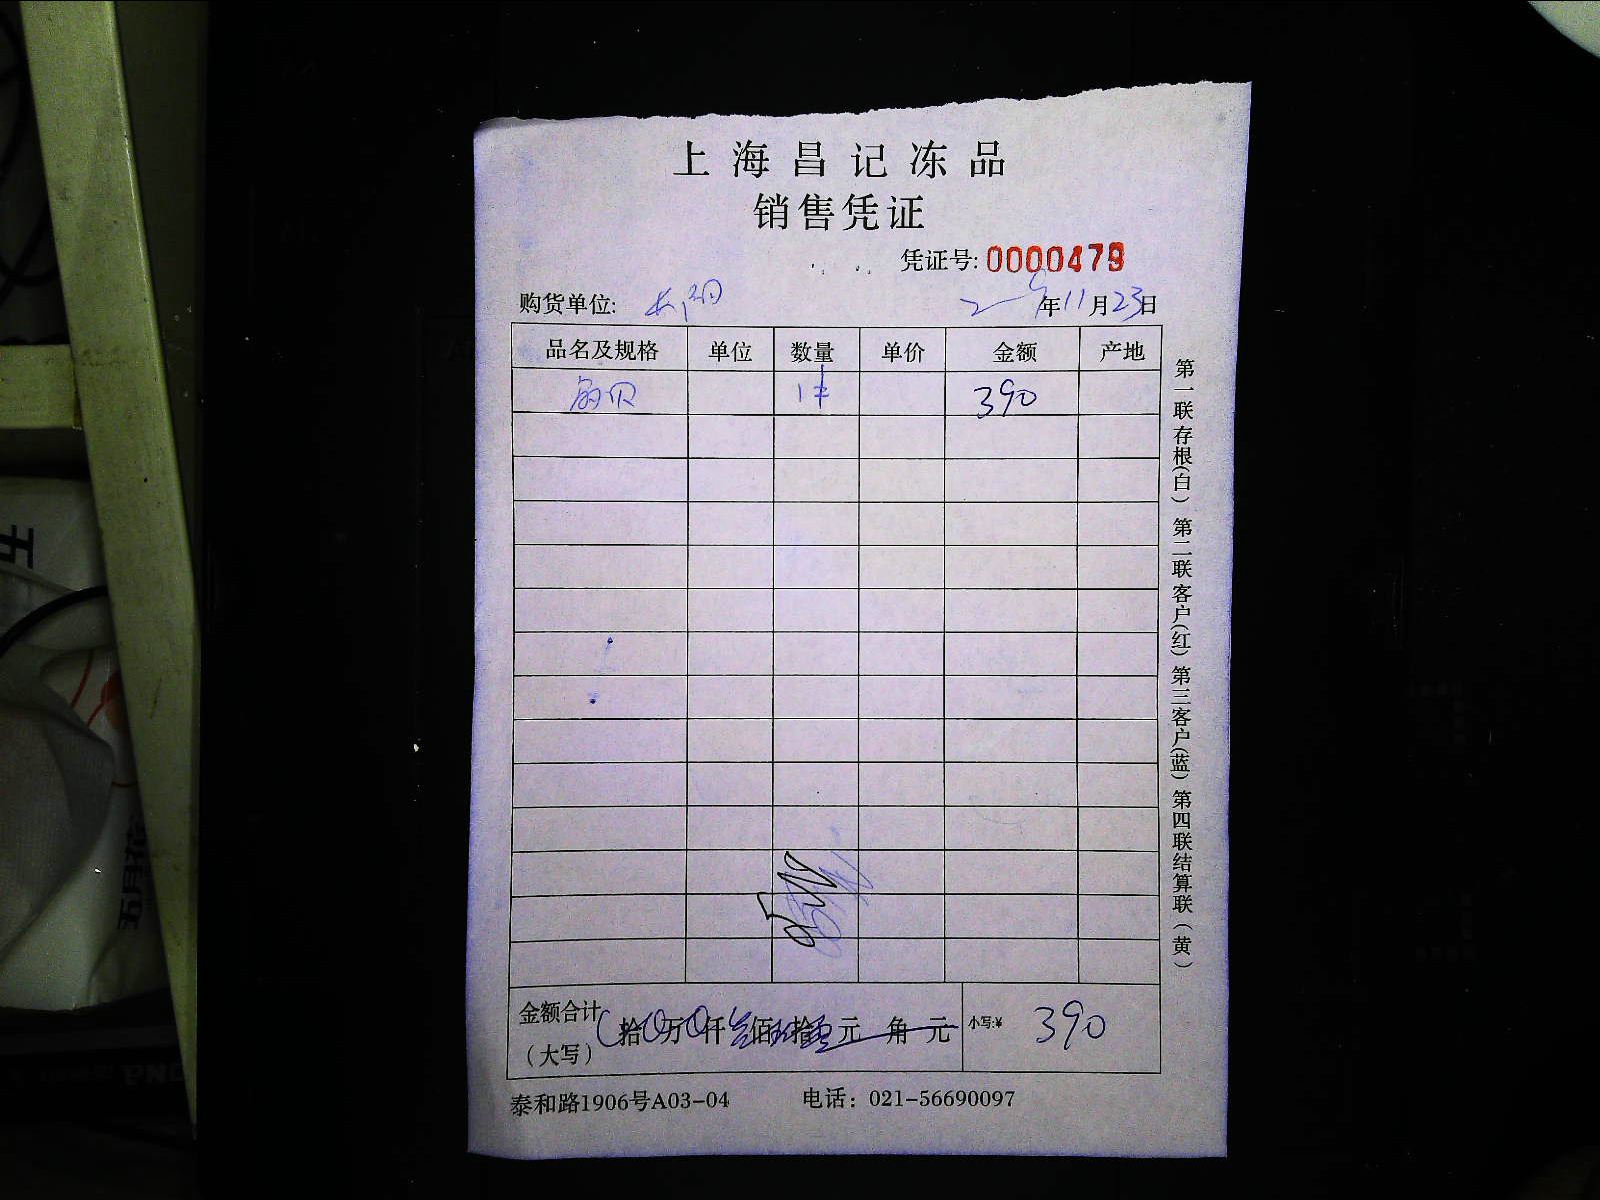 上海昌记冻品
销售凭证
凭证号: 0000479
购货单位: 年11月23日
品名及规格 单位 数量 单价 金额 产地
贝 1件 390
金额合计 拾 万 仟 佰 拾 元 角 元 小写:¥ 390
（大写）
泰和路1906号A03-04 电话：021-56690097
第一联存根(白) 第二联客户(红) 第三客户(蓝) 第四联结算联(黄)
五
五月花